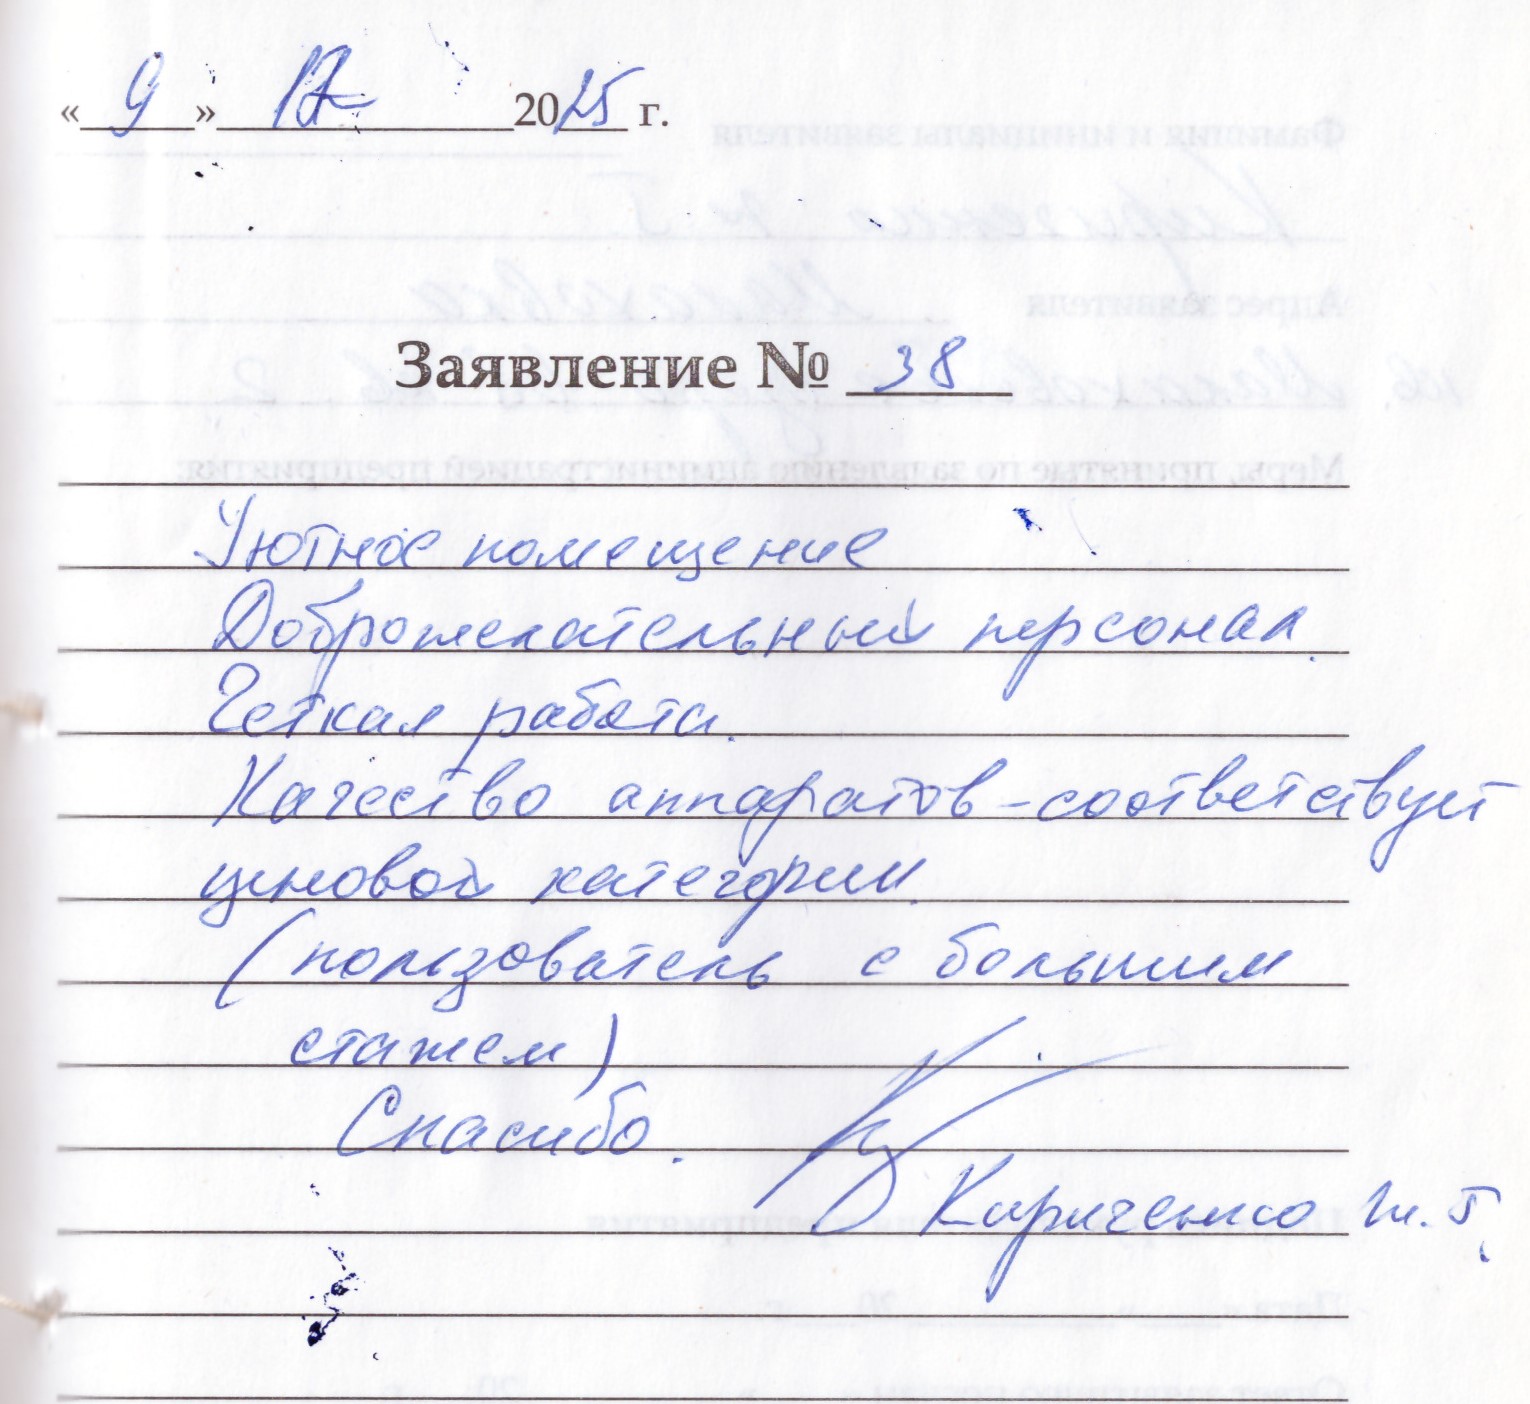 « 9 » 12 2025 г.
Заявление № 38
Уютное помещение
Доброжелательный персонал.
Четкая работа.
Качество аппаратов – соответствует
ценовой категории.
(пользователь с большим
стажем)
Спасибо.
Кириченко